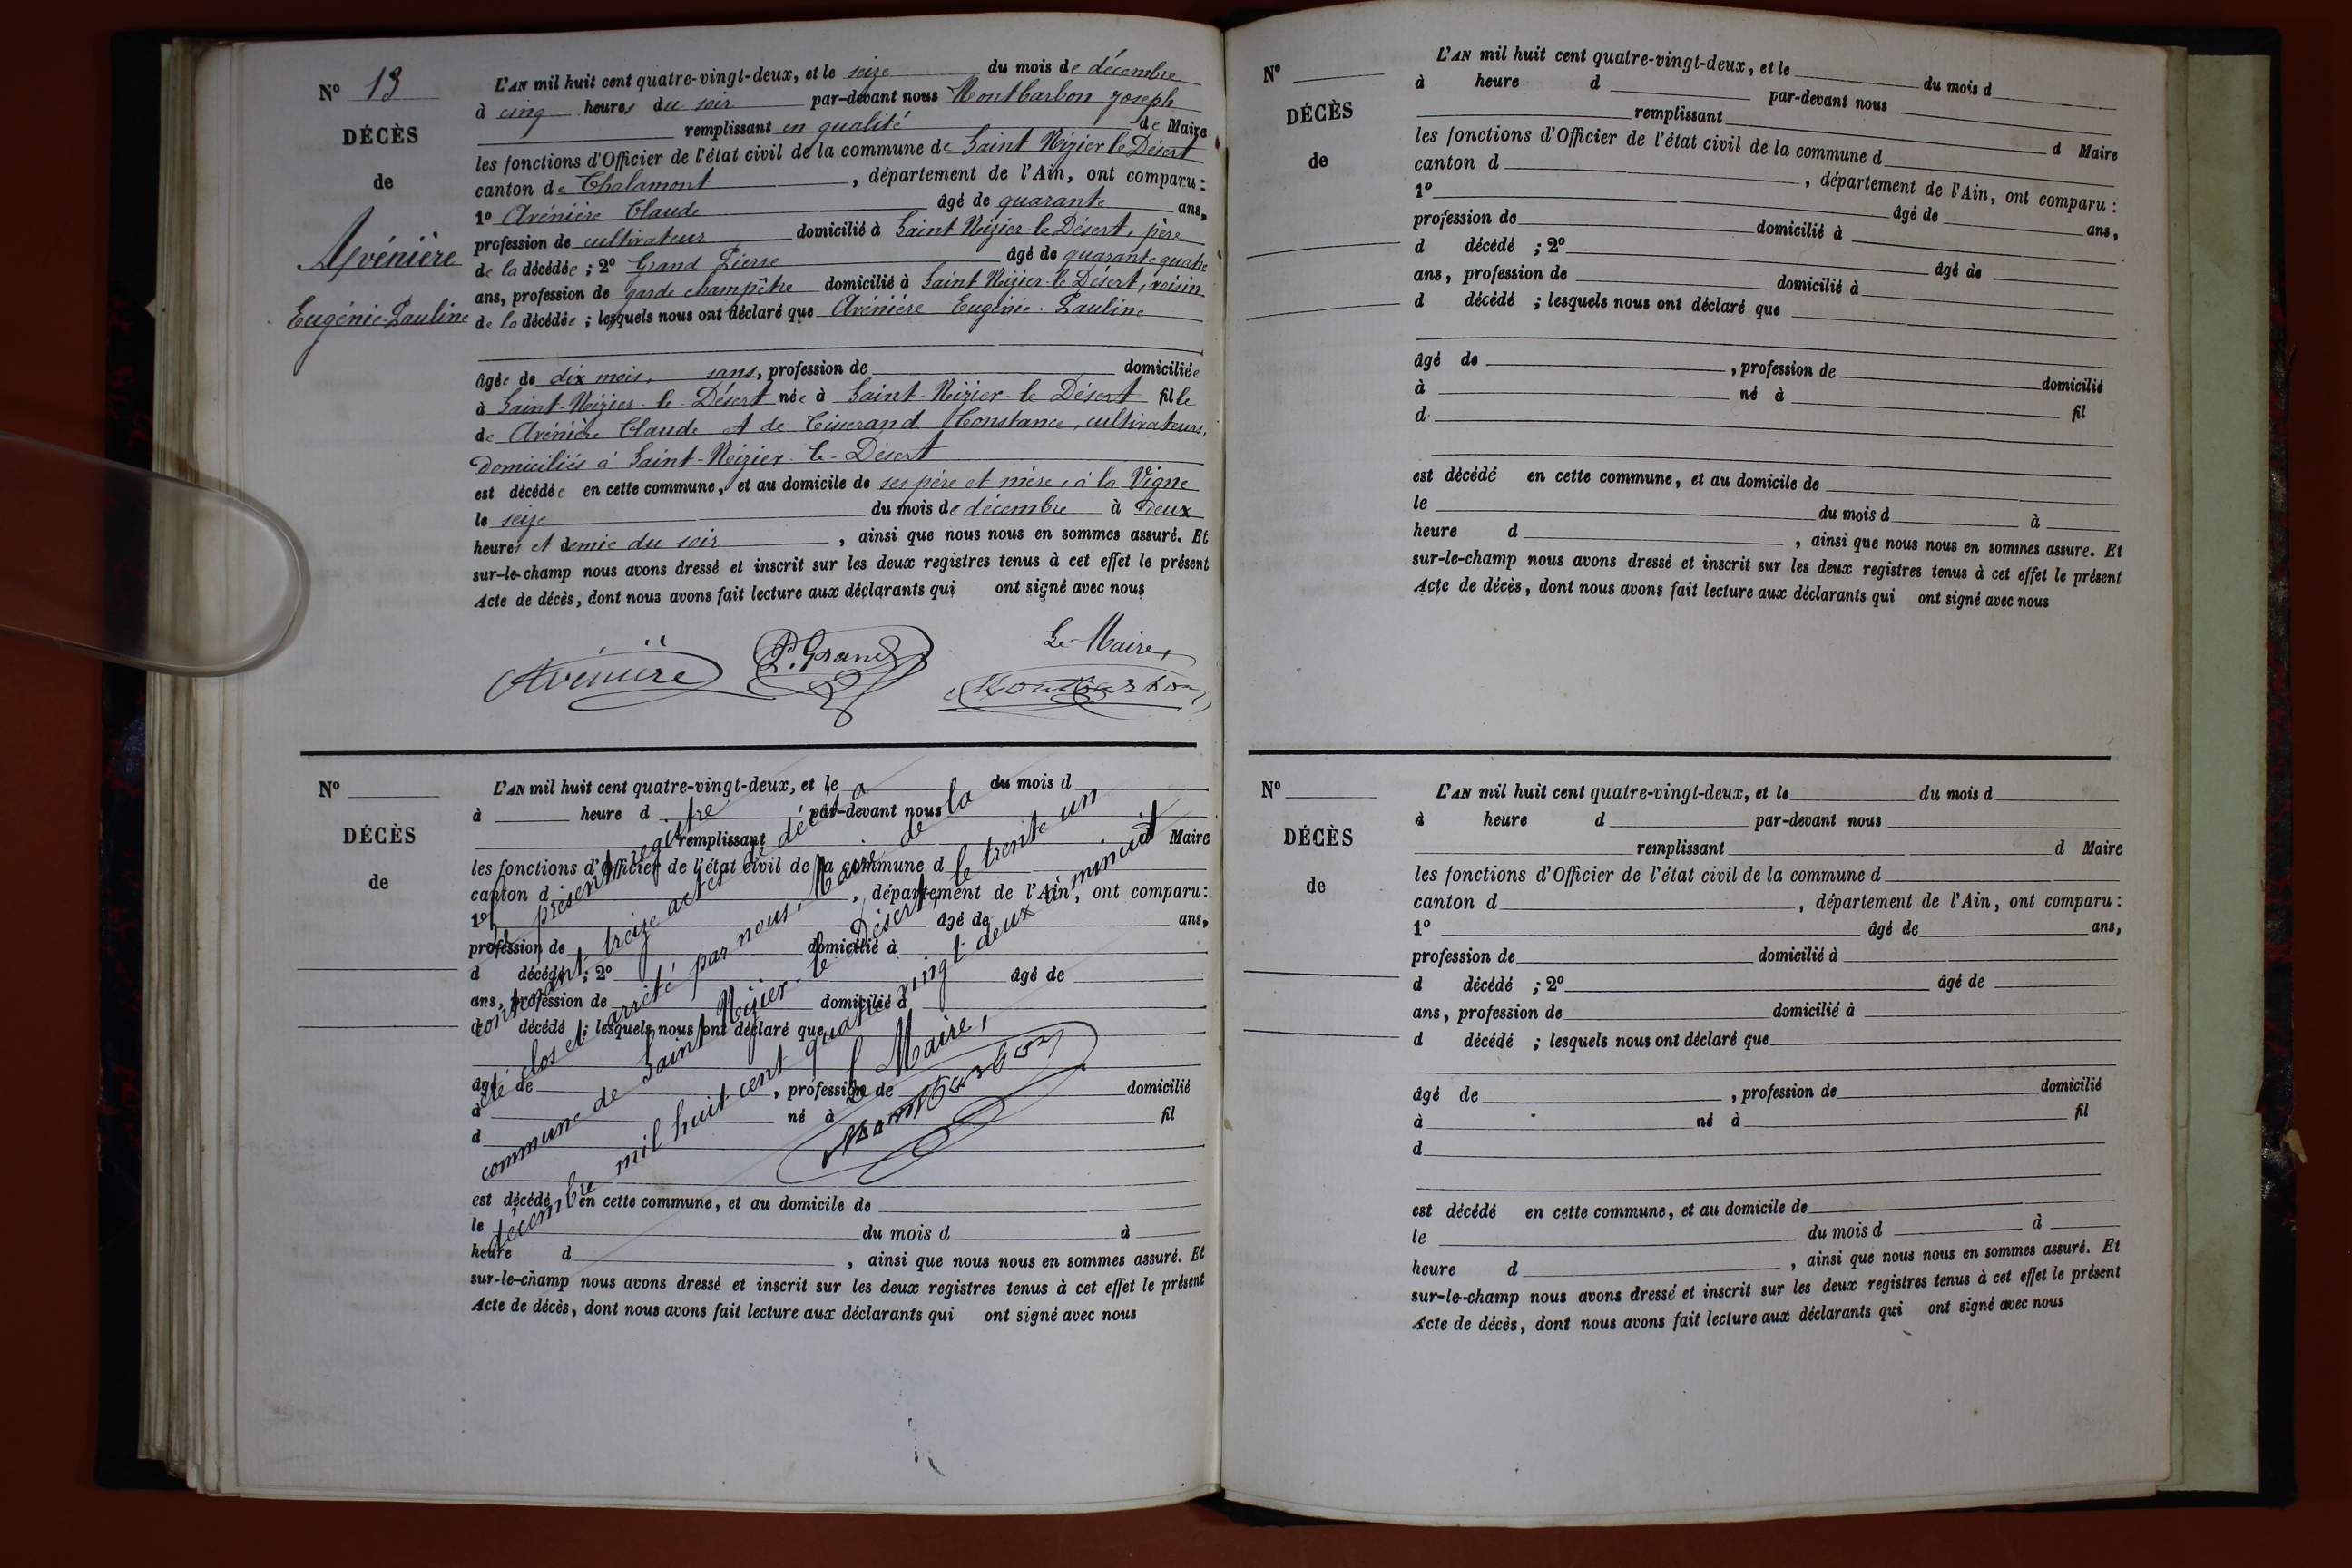 N° 13
DÉCÈS
de
Avénière
Eugénie-Pauline
L'AN mil huit cent quatre-vingt-deux, et le seize du mois de décembre
à cinq heures du soir par-devant nous Montbarbon Joseph
remplissant en qualité de Maire
les fonctions d'Officier de l'état civil de la commune de Saint Nizier le Désert
canton de Chalamont, département de l'Ain, ont comparu :
1° Avénière Claude âgé de quarante ans,
profession de cultivateur domicilié à Saint Nizier-le-Désert, père
de la décédée ; 2° Grand Pierre âgé de quarante quatre
ans, profession de garde champêtre domicilié à Saint Nizier-le-Désert, voisin
de la décédée ; lesquels nous ont déclaré que Avénière Eugénie-Pauline
âgée de dix mois, sans, profession de domiciliée
à Saint-Nizier-le-Désert née à Saint-Nizier-le Désert fille
de Avénière Claude et de Tisserand Constance, cultivateurs,
domiciliés à Saint-Nizier-le-Désert
est décédée en cette commune, et au domicile de ses père et mère, à la Vigne
le seize du mois de décembre à deux
heures et demie du soir, ainsi que nous nous en sommes assuré. Et
sur-le-champ nous avons dressé et inscrit sur les deux registres tenus à cet effet le présent
Acte de décès, dont nous avons fait lecture aux déclarants qui ont signé avec nous
Le Maire,
Avénière P. Grand Montbarbon
N°
DÉCÈS
de
L'AN mil huit cent quatre-vingt-deux, et le du mois d
à heure d par-devant nous
remplissant d Maire
les fonctions d'Officier de l'état civil de la commune d
canton d , département de l'Ain, ont comparu :
1° âgé de ans,
profession de domicilié à
d décédé ; 2° âgé de
ans, profession de domicilié à
d décédé ; lesquels nous ont déclaré que
âgé de , profession de domicilié
à né à fil
d
est décédé en cette commune, et au domicile de
le du mois d à
heure d , ainsi que nous nous en sommes assuré. Et
sur-le-champ nous avons dressé et inscrit sur les deux registres tenus à cet effet le présent
Acte de décès, dont nous avons fait lecture aux déclarants qui ont signé avec nous
Le présent registre
contenant treize actes de décès a
été clos et arrêté par nous, Maire de la
commune de Saint Nizier-le-Désert, le trente un
décembre mil huit cent quatre vingt-deux à minuit
Le Maire,
Montbarbon
N°
DÉCÈS
de
L'AN mil huit cent quatre-vingt-deux, et le du mois d
à heure d par-devant nous
remplissant d Maire
les fonctions d'Officier de l'état civil de la commune d
canton d , département de l'Ain, ont comparu :
1° âgé de ans,
profession de domicilié à
d décédé ; 2° âgé de
ans, profession de domicilié à
d décédé ; lesquels nous ont déclaré que
âgé de , profession de domicilié
à né à fil
d
est décédé en cette commune, et au domicile de
le du mois d à
heure d , ainsi que nous nous en sommes assuré. Et
sur-le-champ nous avons dressé et inscrit sur les deux registres tenus à cet effet le présent
Acte de décès, dont nous avons fait lecture aux déclarants qui ont signé avec nous
N°
DÉCÈS
de
L'AN mil huit cent quatre-vingt-deux, et le du mois d
à heure d par-devant nous
remplissant d Maire
les fonctions d'Officier de l'état civil de la commune d
canton d , département de l'Ain, ont comparu :
1° âgé de ans,
profession de domicilié à
d décédé ; 2° âgé de
ans, profession de domicilié à
d décédé ; lesquels nous ont déclaré que
âgé de , profession de domicilié
à né à fil
d
est décédé en cette commune, et au domicile de
le du mois d à
heure d , ainsi que nous nous en sommes assuré. Et
sur-le-champ nous avons dressé et inscrit sur les deux registres tenus à cet effet le présent
Acte de décès, dont nous avons fait lecture aux déclarants qui ont signé avec nous